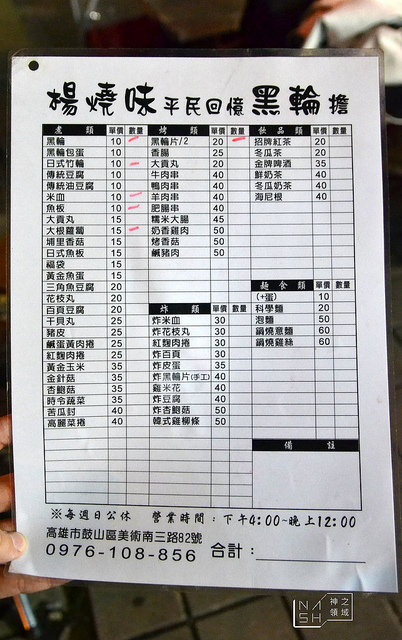 楊燒味平民回憶黑輪擔
煮類 單價 數量
黑輪 10
黑輪包蛋 10
日式竹輪 10
傳統豆腐 10
傳統油豆腐 10
米血 10
魚板 10
大貢丸 15
大根蘿蔔 15
埔里香菇 15
日式魚板 15
福袋 15
黃金魚蛋 15
三角魚豆腐 20
花枝丸 20
百頁豆腐 20
干貝丸 25
豬皮 25
鹹蛋黃肉捲 25
紅麴肉捲 25
黃金玉米 35
金針菇 35
杏鮑菇 35
時令蔬菜 35
苦瓜封 40
高麗菜捲 40
烤類 單價 數量
黑輪片/2 20
香腸 25
大貢丸 20
牛肉串 40
鴨肉串 40
羊肉串 40
肥腸串 40
糯米大腸 45
奶香雞肉 50
烤香菇 50
鹹豬肉 50
炸類 單價 數量
炸米血 30
炸花枝丸 30
紅麴肉捲 30
炸百頁 30
炸皮蛋 35
炸黑輪片(手工) 40
雞米花 40
炸豆腐 40
炸杏鮑菇 50
韓式雞柳條 50
飲品類 單價 數量
招牌紅茶 20
冬瓜茶 20
金牌啤酒 35
鮮奶茶 40
冬瓜奶茶 40
海尼根 40
麵食類 單價 數量
(+蛋) 10
科學麵 20
泡麵 50
鍋燒意麵 60
鍋燒雞絲 60
備註
※每週日公休 營業時間：下午4:00~晚上12:00
高雄市鼓山區美術南三路82號
0976-108-856 合計：
NASH 神之領域